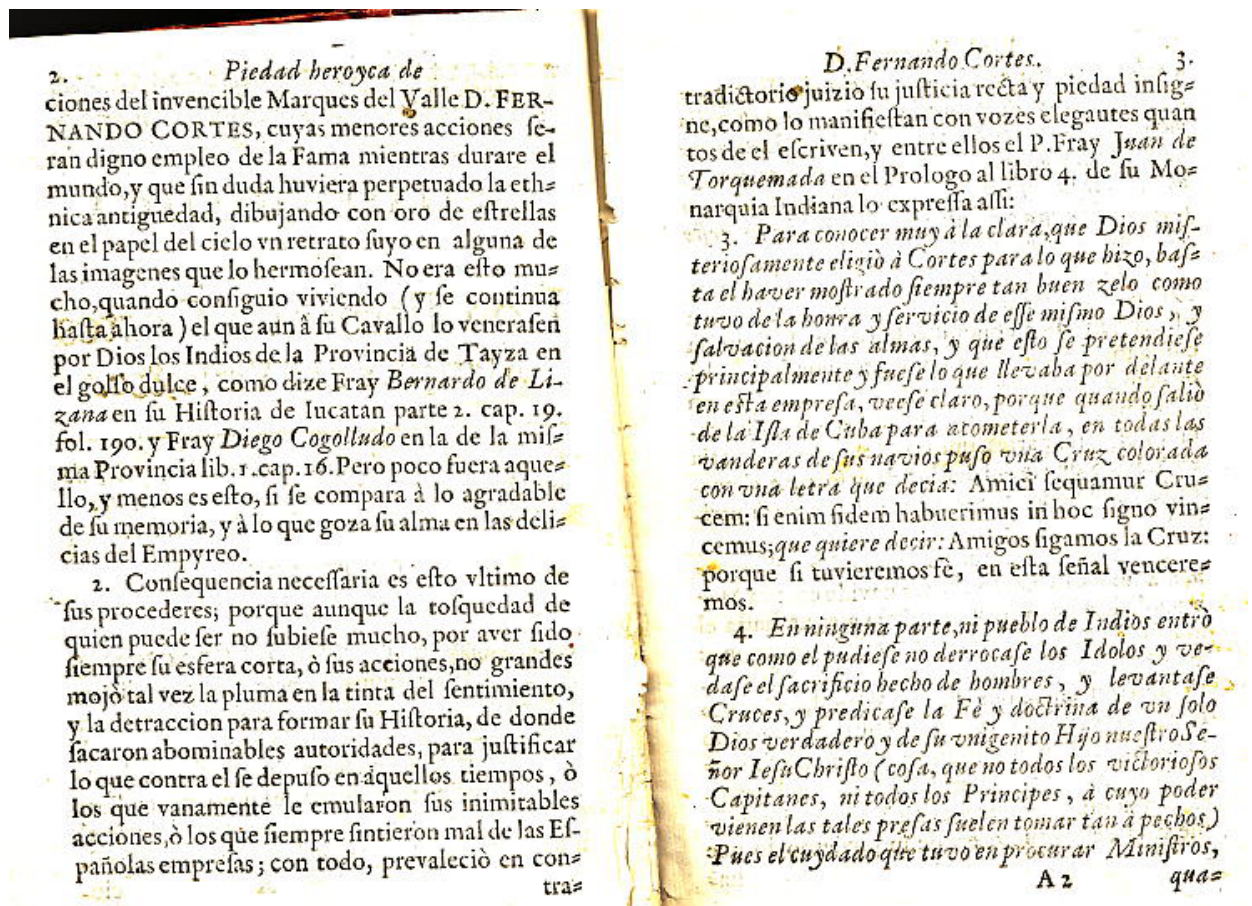 2. Piedad heroyca de
ciones del invencible Marques del Valle D. FER-
NANDO CORTES, cuyas menores acciones ſe-
ran digno empleo de la Fama mientras durare el
mundo,y que ſin duda huviera perpetuado la eth=
nica antiguedad, dibujando con oro de eſtrellas
en el papel del cielo vn retrato ſuyo en alguna de
las imagenes que lo hermoſean. No era eſto mu=
cho,quando conſiguio viviendo (y ſe continua
haſta ahora) el que aun â ſu Cavallo lo veneraſen
por Dios los Indios de la Provincia de Tayza en
el golfo dulce, como dize Fray Bernardo de Li-
zana en ſu Hiſtoria de Iucatan parte 2. cap. 19.
fol. 190. y Fray Diego Cogolludo en la de la miſ=
ma Provincia lib. 1.cap. 16.Pero poco fuera aque=
llo,y menos es eſto, ſi ſe compara à lo agradable
de ſu memoria, y à lo que goza ſu alma en las deli=
cias del Empyreo.
2. Conſequencia neceſſaria es eſto vltimo de
ſus procederes; porque aunque la toſquedad de
quien puede ſer no ſubieſe mucho, por aver ſido
ſiempre ſu esfera corta, ò ſus acciones,no grandes
mojò tal vez la pluma en la tinta del ſentimiento,
y la detraccion para formar ſu Hiſtoria, de donde
ſacaron abominables autoridades, para juſtificar
lo que contra el ſe depuſo en aquellos tiempos, ò
los que vanamente le emularon ſus inimitables
acciones,ò los que ſiempre ſintieron mal de las Eſ-
pañolas empreſas; con todo, prevaleciò en con=
tra=
D. Fernando Cortes. 3.
tradictorio juizio ſu juſticia recta y piedad inſig=
ne,como lo manifieſtan con vozes elegautes quan
tos de el eſcriven,y entre ellos el P.Fray Juan de
Torquemada en el Prologo al libro 4. de ſu Mo=
narquia Indiana lo expreſſa aſſi:
3. Para conocer muy à la clara,que Dios miſ-
terioſamente eligiò à Cortes para lo que hizo, baſ=
ta el haver moſtrado ſiempre tan buen zelo como
tuvo de la honra y ſervicio de eſſe miſmo Dios, y
ſalvacion de las almas, y que eſto ſe pretendieſe
principalmente y fueſe lo que llevaba por delante
en eſta empreſa, veeſe claro, porque quando ſaliò
de la Iſla de Cuba para acometerla, en todas las
vanderas de ſus navios puſo vna Cruz colorada
con vna letra que decia: Amici ſequamur Cru=
cem: ſi enim fidem habuerimus in hoc ſigno vin=
cemus;que quiere decir: Amigos ſigamos la Cruz:
porque ſi tuvieremos fè, en eſta ſeñal vencere=
mos.
4. En ninguna parte,ni pueblo de Indios entrò
que como el pudieſe no derrocaſe los Idolos y ve=
daſe el ſacrificio hecho de hombres, y levantaſe
Cruces,y predicaſe la Fè y doctrina de vn ſolo
Dios verdadero y de ſu vnigenito Hijo nueſtro Se-
ñor IeſuChriſto (coſa, que no todos los victorioſos
Capitanes, ni todos los Principes, à cuyo poder
vienen las tales preſas ſuelen tomar tan à pechos)
Pues el cuydado que tuvo en procurar Miniſtros,
A 2 qua=